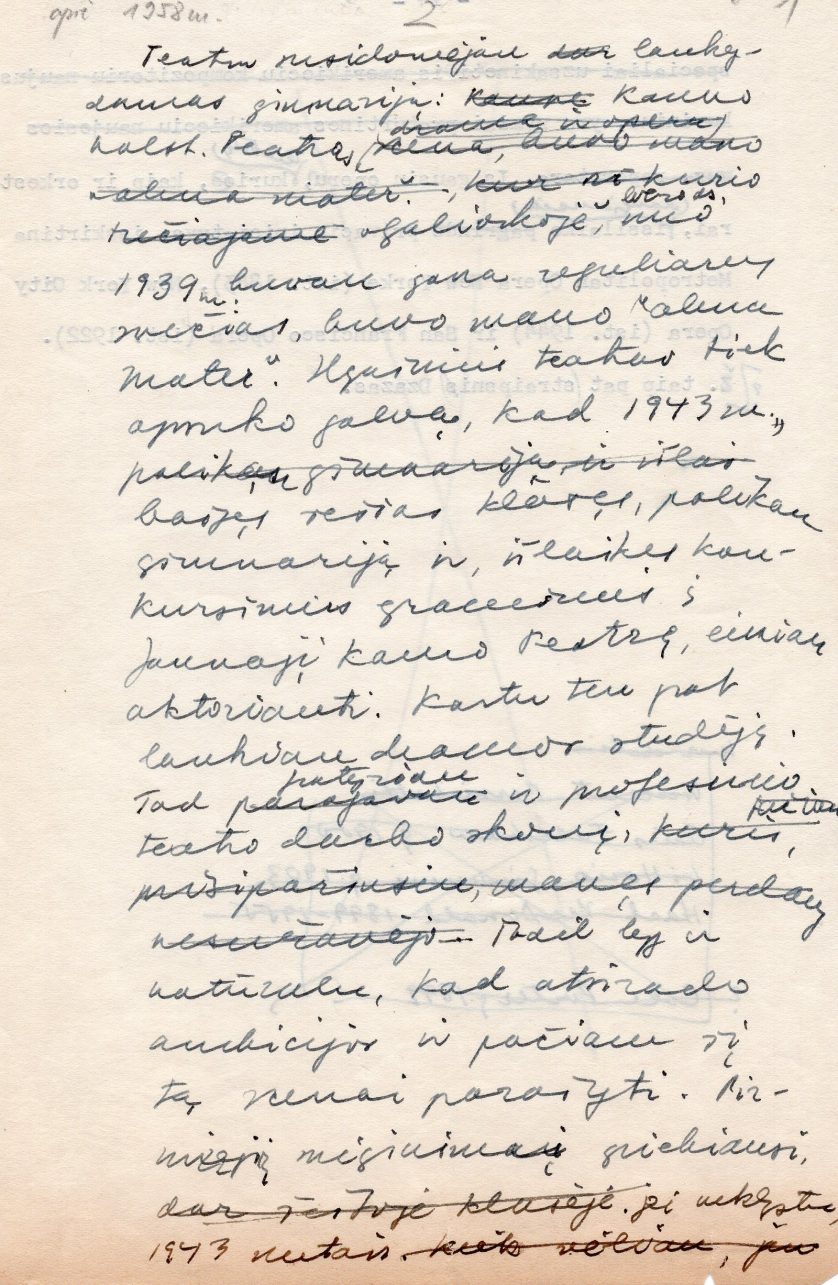 apie 1958 m.
2
1
Teatru susidomėjau dar lanky-
damas gimnaziją: Kauno Kauno
drama ir opera
valst. Teatras, (scena, buvo mano
"alma mater". , kurio
bėrods,
trečiajame galiorkoje, nuo
1939 m. buvau gana reguliarus
svečias buvo mano "alma
mater". Ilgainiui teatras tiek
apsuko galvą, kad 1943 m.,
palikau gimnaziją, ir išlai
baigęs šešias klases, palikau
gimnaziją ir, išlaikęs kon-
kursinius egzaminus į
Jaunąjį Kauno Teatrą, ėmiau
aktoriauti. Kartu ten pat
lankiau dramos studiją.
patyriau
Tad paragavau ir profesinio
teatro darbo skonį, kuris,
prisipažinsiu, manęs perdaug
nesužavėjo. Todėl lyg ir
natūralu, kad atsirado
ambicijos ir pačiam šį
tą scenai parašyti. Pir-
mięjį mėginimai griebiausi,
dar šeštoje klasėje. jei neklystu,
1943 metais. Kiek vėliau, jau